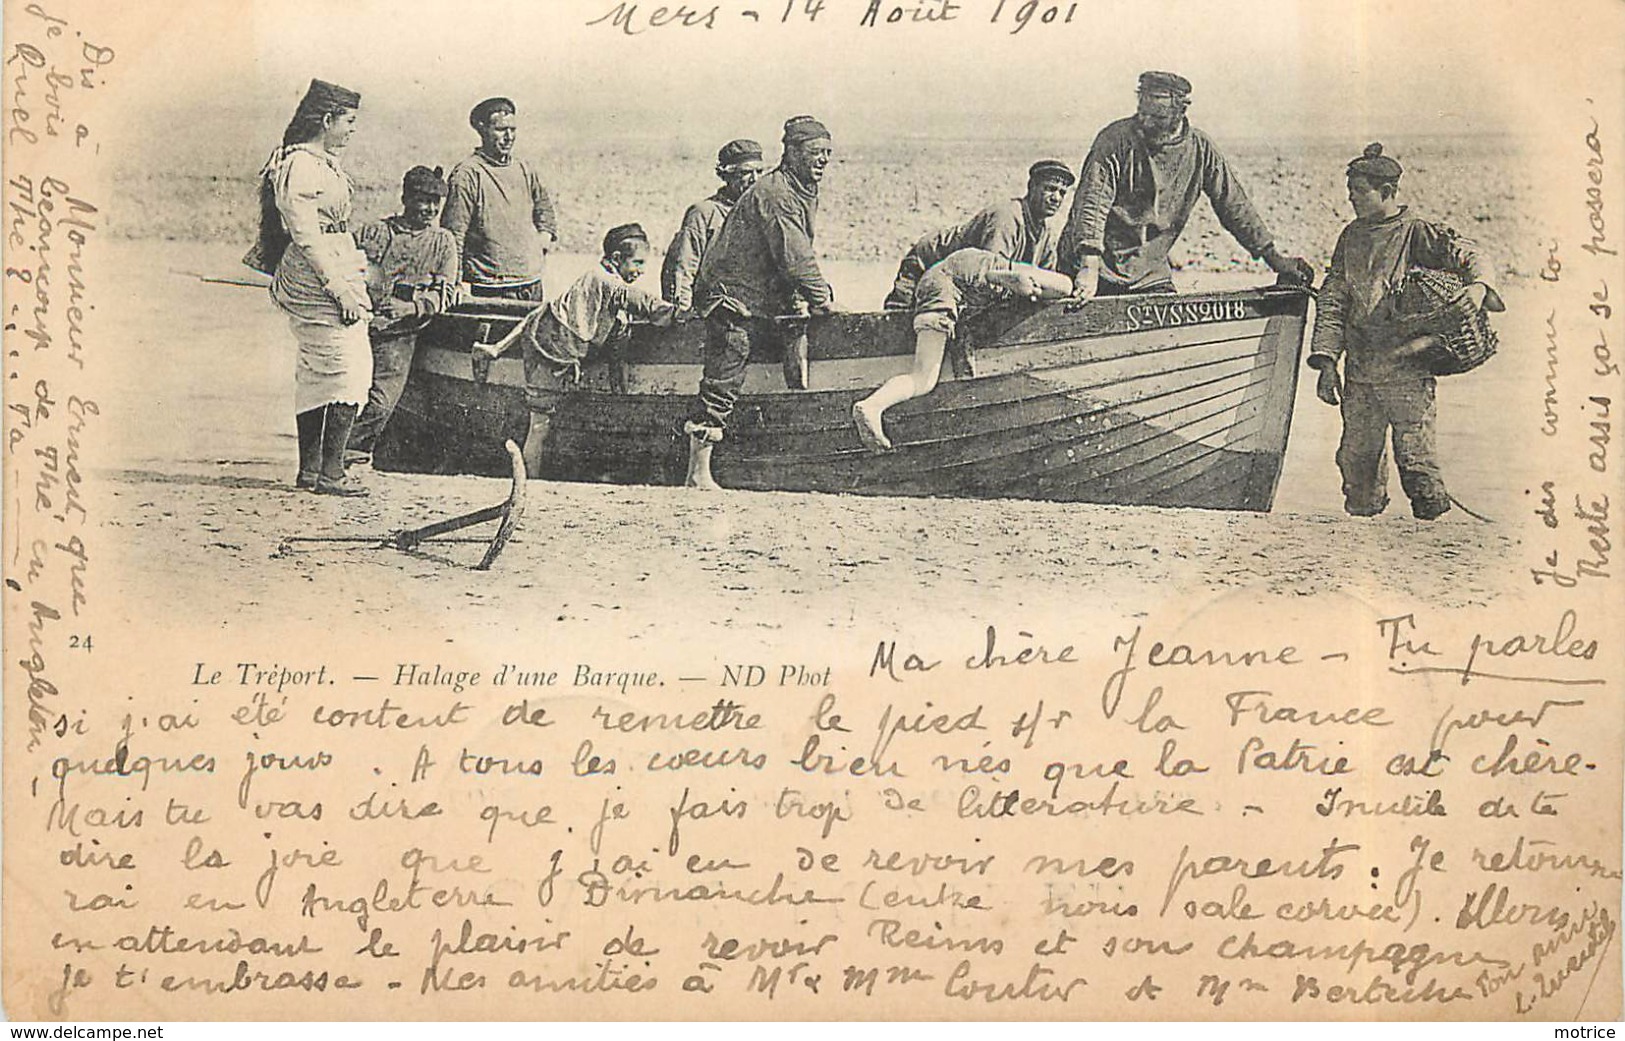 Mers - 14 Août 1901
StVS.S2018
24
Le Tréport. — Halage d'une Barque. — ND Phot
Ma chère Jeanne - Tu parles
si j'ai été content de remettre le pied s/r la France pour
quelques jours. A tous les cœurs bien nés que la Patrie est chère.
Mais tu vas dire que je fais trop de litterature. - Inutile de te
dire la joie que j'ai eu de revoir mes parents. Je retourne
rai en Angleterre Dimanche (entre nous sale corvée). Allons
en attendant le plaisir de revoir Reims et son champagne
je t'embrasse - Mes amitiés à Mr & Mme Coutur & Mme
Ton ami
Dis à Monsieur Ernest, que
je bois beaucoup de Thé en Angleterre -
Quel Thé ? . . . . Ta
Je dis comme toi
Reste assis ça se possera.
delcampe.net
motrice